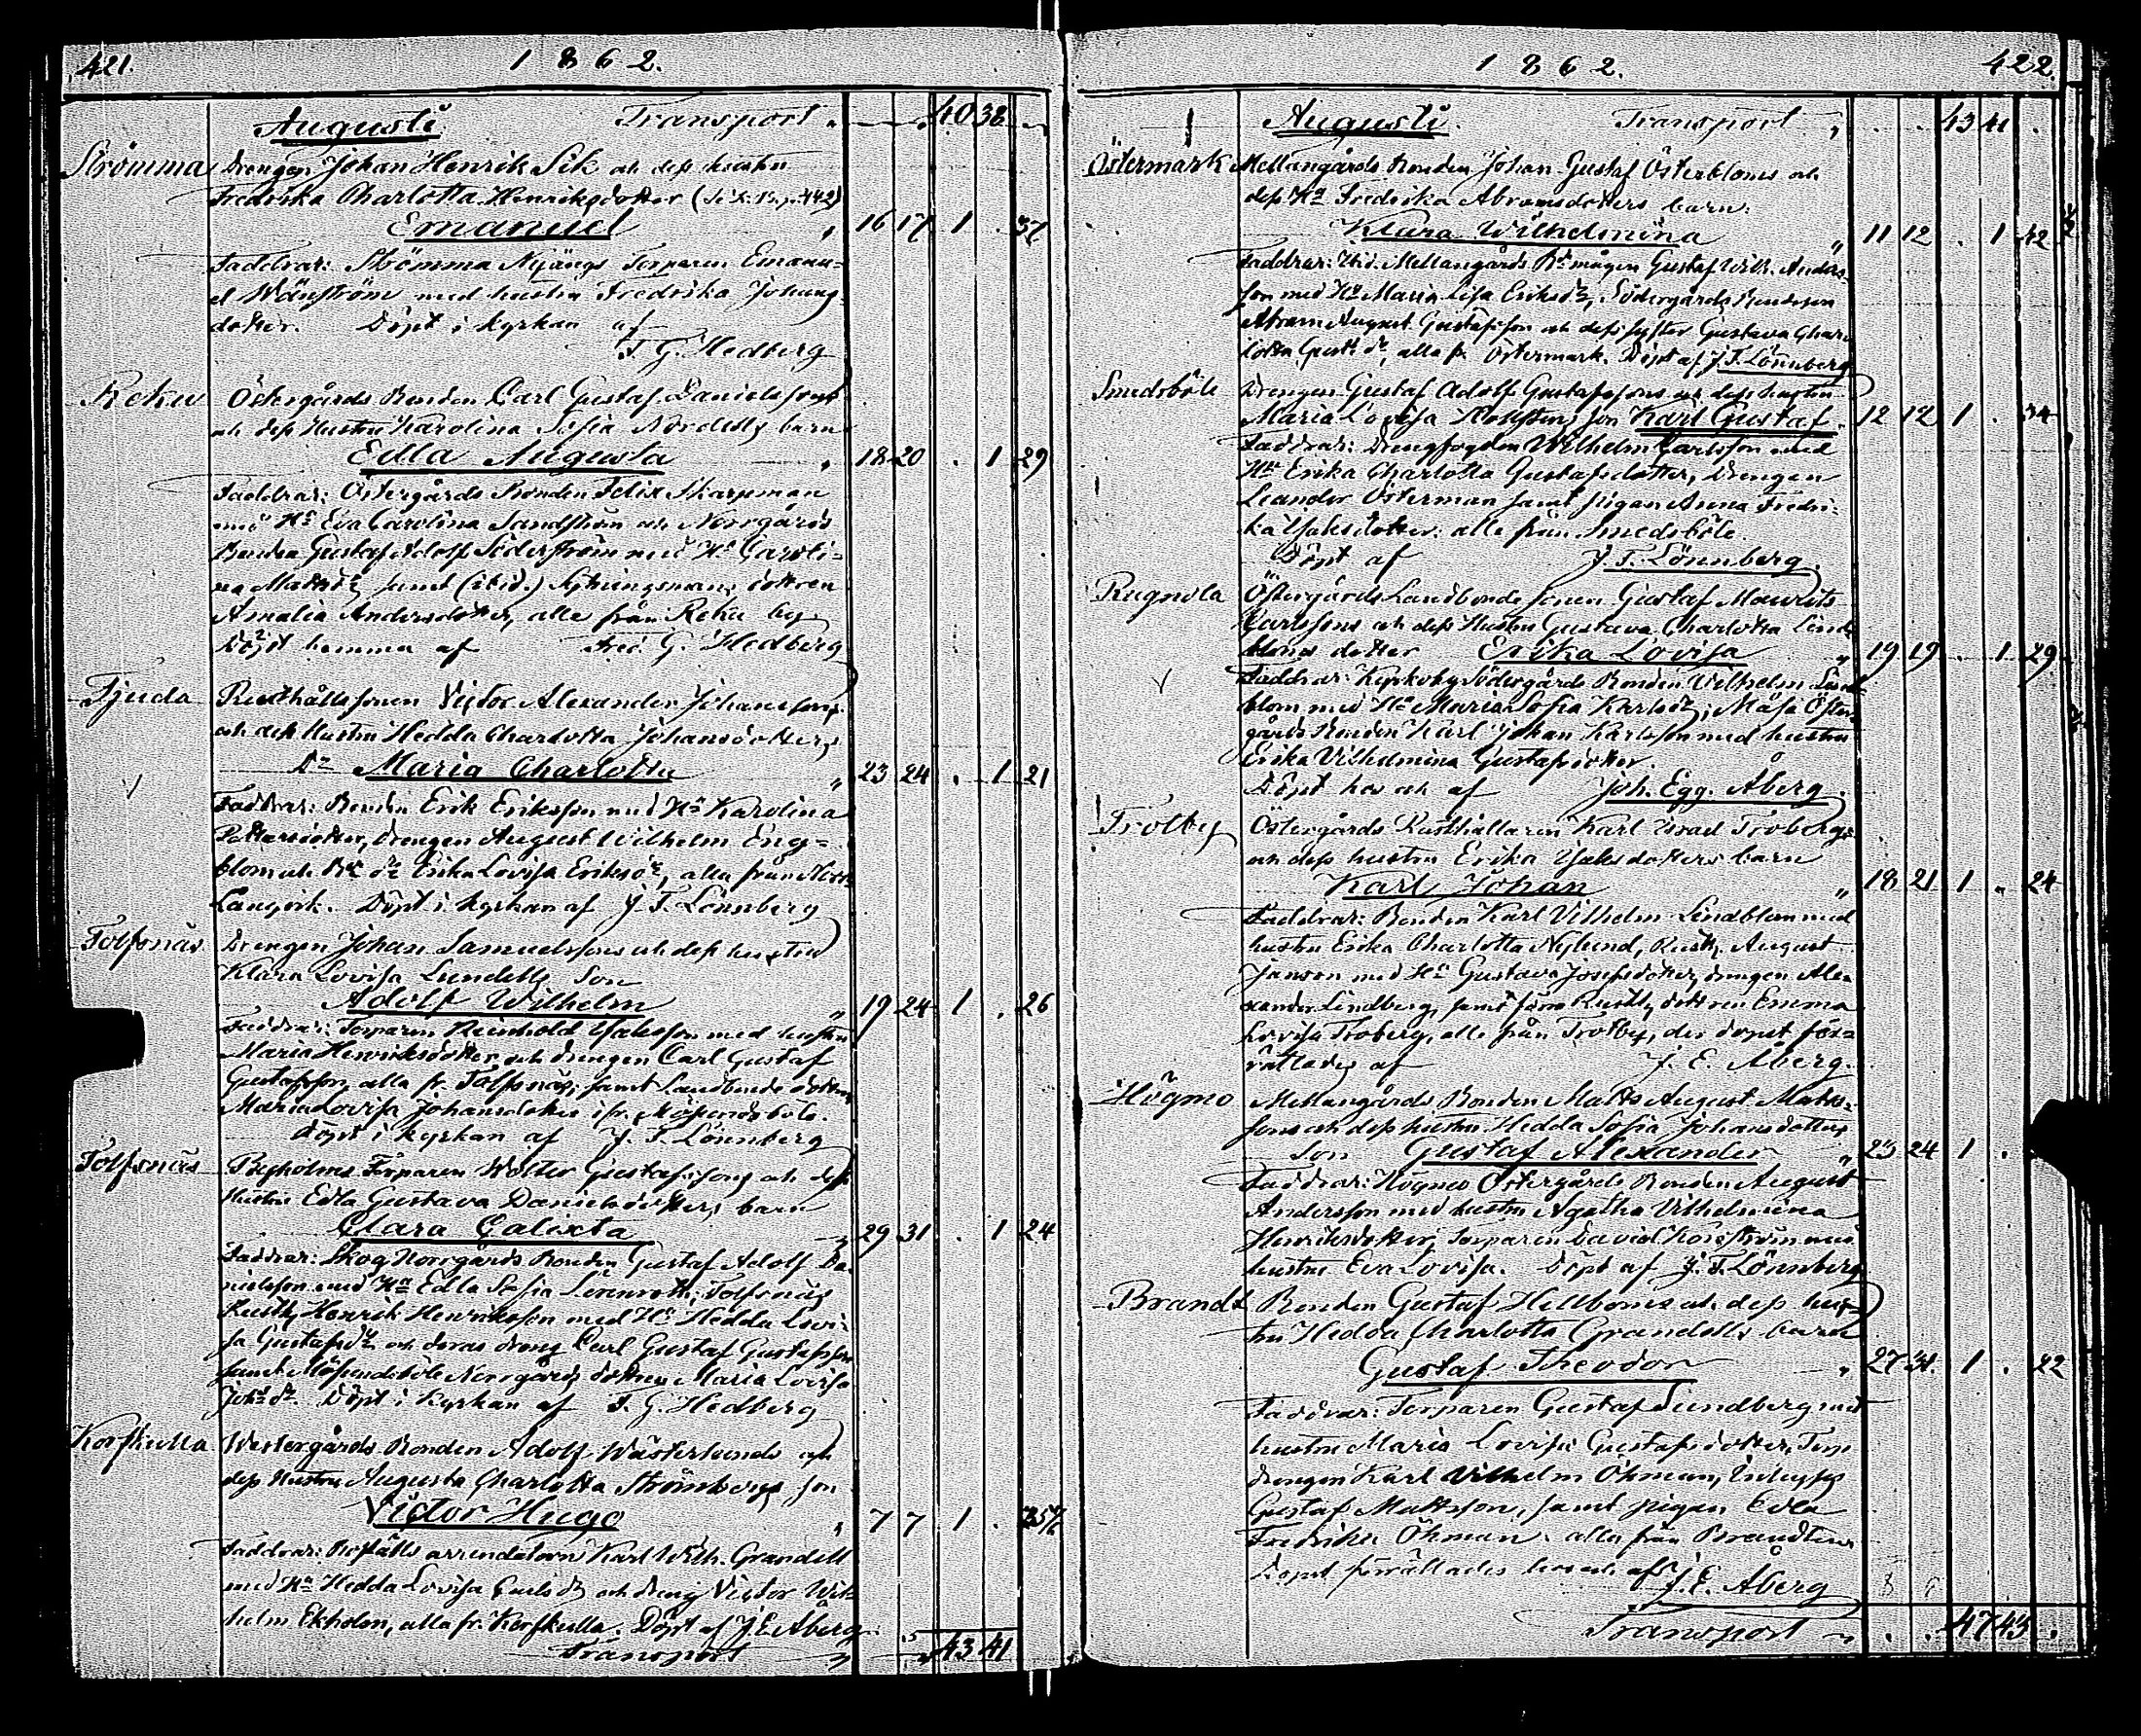 421. 1862.
Augusti Transport „ 40 38
Strömma Drengen Johan Henrik Sik och dess hustru
Fredrika Charlotta Henriksdotter
Emanuel „ 16 17 1 . 37
Faddrar: Strömma Nyängs Torparen Emanu-
el Wänström med hustru Fredrika Johans-
dotter. Döpt i kyrkan af
F. G. Hedberg
Reku Östergårds Bonden Carl Gustaf Danielssons
och dess Hustru Karolina Sofia Nordells barn
Edla Augusta „ 18 20 . 1 29
Faddrar: Östergårds Bonden Felix Skarpman
med Hu Eva Carolina Sandström och Norrgårds
Bonden Gustaf Adolf Söderström med Hu Caroli-
na Mattsdr samt (ibid.) Sytningsmans dottren
Amalia Andersdotter, alla från Reku by
Döpt hemma af Fred. G. Hedberg
Tjuda Rusthållssonen Victor Alexander Johanssons
och dess Hustru Hedda Charlotta Johansdotters
Dr Maria Charlotta „ 23 24 . 1 21
Faddrar: Bonden Erik Eriksson med Hu Karolina
Pettersdotter, drengen August Wilhelm Eng-
blom och Erika Lovisa Eriksdr, alla från Norr-
Långvik. Döpt i kyrkan af J. T. Lönnberg
Tolfsnäs Drengen Johan Samuelssons och dess hustru
Klara Lovisa Lundells Son
Adolf Wilhelm „ 19 24 1 . 26
Faddrar: Torparen Reinhold Isaksson med hustru
Maria Henriksdotter och drengen Carl Gustaf
Gustafsson, alla fr. Tolfsnäs; samt Landbonde dottren
Maria Lovisa Johansdotter ifr.
döpt i kyrkan af J. T. Lönnberg
Tolfsnäs Byholms Torparen Wolter Gustafssons och dess
Hustru Edla Gustava Danielsdotters barn
Clara Calixta „ 29 31 . 1 24
Faddrar: Skog Norrgårds Bonden Gustaf Adolf Da-
nielsson med Hu Edla Sofia Lerenroth; Tolfsnäs
Rusth. Henrik Henriksson med Hu Hedda Lovi-
sa Gustafsdr och deras dreng Carl Gustaf Gustafsson
samt Norrgårds dottren Maria Lovisa
Joh. dr. Döpt i Kyrkan af F. G. Hedberg
Korfkulla Westergårds Bonden Adolf Wästerlunds och
dess Hustru Augusta Charlotta Strömbergs son
Victor Hugo „ 7 7 1 .
Faddrar: arrendatorn Karl Wilh. Grandell
med Hu Hedda Lovisa Carlsdr och dreng Victor Wil-
helm Ekholm, alla fr. Korfkulla. Döpt af J. E. Åberg.
Transport „ 43 41
1862. 422.
Augusti. Transport „ 43 41
Östermark Mellangårds Bonden Johan Gustaf Österbloms och
dess Hu Fredrika Abramsdotters barn:
Klara Wilhelmina „ 11 12 . 1 42
Faddrar: Ibid. Mellangårds Bdemågen Gustaf Wilh. Anders-
son med Hu Maria Lisa Eriksdr, Södergårds Bondeson
Abram August Gustafsson och dess syster Gustava Char-
lotta Gust. dr, alla fr. Östermark. Döpt af J. T. Lönnberg
Smedsböle Drengen Gustaf Adolf Gustafssons och dess hustru
Maria Lovisa son Karl Gustaf. 12 12 1 . 34
Faddrar: Drengfogden Wilhelm Carlsson med
Hu Erika Charlotta Gustafsdotter, Drengen
Leander Österman samt pigan Anna Fredri-
ka Isaksdotter: alla från Smedsböle.
Döpt af J. T. Lönnberg.
Rugnola Östergårds Landbonde sonen Gustaf Maurits
Carlssons och dess Hustru Gustava Charlotta Lind-
bloms dotter Erika Lovisa „ 19 19 . 1 29
Faddrar: Kyrkoby Södergårds Bonden Vilhelm Lind-
blom med Hu Maria Sofia Karlsdr; Mäsa Öster-
gårds Bonden Karl Johan Karlsson med hustru
Erika Vilhelmina Gustafsdotter.
Döpt hos och af Joh. Egg. Åberg.
Trotby Östergårds Rusthållaren Karl Israel Trobergs
och dess hustru Erika Isaksdotters barn
Karl Johan „ 18 21 1 „ 24
Faddrar: Bonden Karl Vilhelm Lindblom med
hustru Erika Charlotta Nylund, Rusth. August
Janson med Hu Gustava Josefsdotter, drengen Ale-
xander Lindberg, samt förra Rusth. dottren Emma
Lovisa Troberg, alla från Trotby, der dopet för-
rättades af J. E. Åberg.
Högmo Mellangårds Bonden Matts August Matts-
sons och dess hustru Hedda Sofia Johansdotters
Son Gustaf Alexander „ 23 24 1 .
Faddrar: Högmo Östergårds Bonden August
Andersson med hustru Agatha Vilhelmina
Henriksdotter, Torparen David Korsström med
hustru Eva Lovisa. Döpt af J. T. Lönnberg
Brandt Bonden Gustaf Hellboms och dess hus-
tru Hedda Charlotta Grandells barn
Gustaf Theodor „ 27 31. 1 . 22
Faddrar: Torparen Gustaf Sundberg med
hustru Maria Lovisa Gustafsdotter,
drengen Karl Vilhelm Öhman,
Gustaf Mattsson, samt pigan Edla
Fredrika Öhman alla från Brandt.
Dopet förrättades hos och af
J. E. Åberg
Transport „ . . 47 43 .